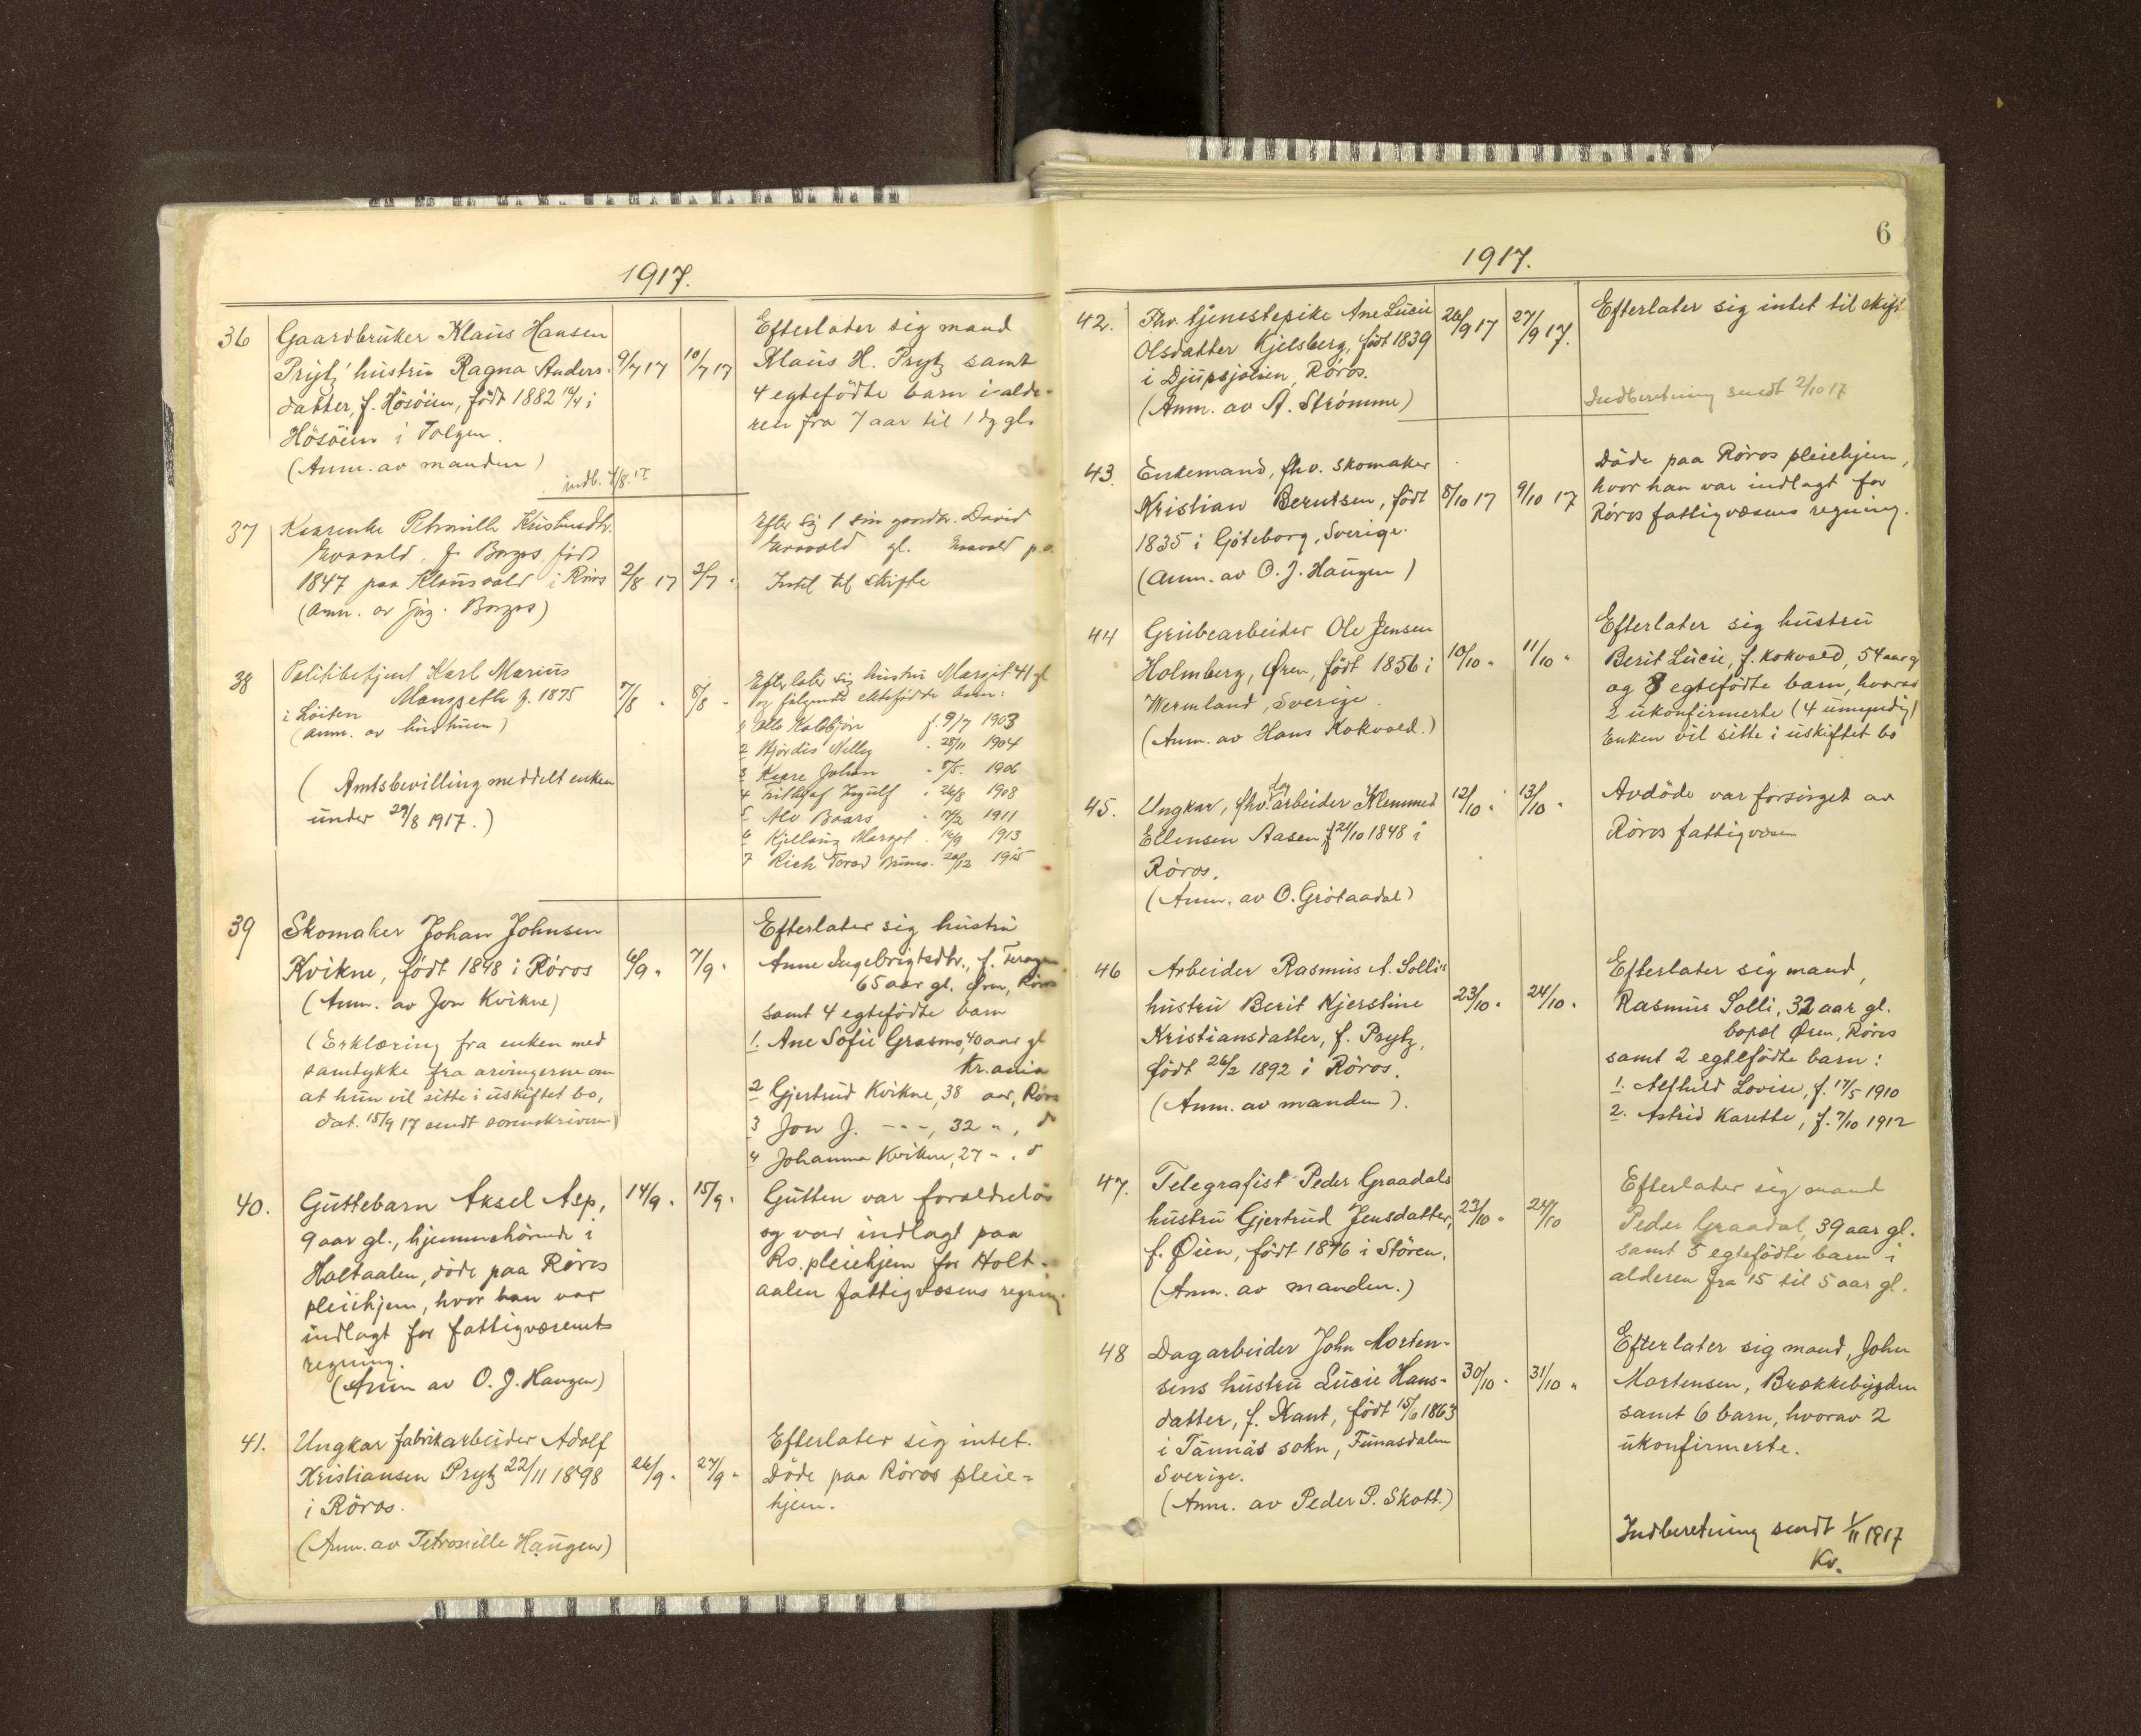 1917.
36
Gaardbruker Klaus Hansen
Prytz' hustru Ragna Anders-
datter, f. Hösöien, födt 1882 14/4 i
Hösöien i Tolgen.
(Anm. av manden)
indb. 4/8. 17
9/7 17
10/7 17
Efterlater sig mand
Klaus H. Prytz samt
4 egtefödte barn i alde-
ren fra 7 aar til 1 dg gl.
37
Petronille
f. Borgos, født
1847 paa Klausvold i Röros
(Anm. av Jörg. Borgos)
2/8 17
3/7 "
Efter sig 1 sön gaardbr. David
gl.
Intet til skifte
38
Politibetjent Karl Marius
Mangseth f. 1875
i Löiten
(Anm. av hustruen)
(Amtsbevilling meddelt enken
under 29/8 1917.)
7/8 "
8/8 "
Efterlater sig hustru Margit 41 gl
og følgende ektefödte barn:
1 Otto Kolbjörn f. 9/7 1903
2 Hjördis Nelly " 28/11 1904
3 Kaare Johan " 5/5. 1906
4 Frithjof Ingulf " 26/8 1908
5 Alv Baars " 17/2 1911
6 Kjellaug Margot " 14/9 1913
7 Rich Torod Bruno. 20/12 1915
39
Skomaker Johan Johnsen
Kvikne, födt 1848 i Röros
(Anm. av Jon Kvikne)
(Erklæring fra enken med
samtykke fra arvingerne om
at hun vil sitte i uskiftet bo,
dat. 15/9 17 sendt sorenskriveren)
6/9 "
7/9 "
Efterlater sig hustru
Anne Ingebrigtsdtr., f. Feragen
65 aar gl. Øren, Röros
samt 4 egtefödte barn
1. Ane Sofie Grasmo, 40 aar gl
Kr.ania
2 Gjertrud Kvikne, 38 aar, Röros
3 Jon J. - " -, 32 " , d
4 Johanna Kvikne, 27 " . d
40.
Guttebarn Aksel Asp,
9 aar gl., hjemmehörende i
Holtaalen, döde paa Röros
pleiehjem, hvor han var
indlagt for fattigvæsenets
regning.
(Anm av O. J. Haugen)
14/9 "
15/9 "
Gutten var forældrelös
og var indlagt paa
Rs. pleiehjem for Holt-
aalen fattigvæsens regning.
41.
Ungkar fabrikarbeider Adolf
Kristiansen Prytz 22/11 1898
i Röros.
(Anm. av Petronille Haugen)
26/9 "
27/9 "
Efterlater sig intet.
Döde paa Röros pleie-
hjem.
6
1917.
42.
Fhv. tjenestepike Ane Lucie
Olsdatter Kjelsberg, födt 1839
i Djupsjöien, Röros.
(Anm. av A. Strömme)
26/9 17
27/9 17.
Efterlater sig intet til skift
Indberetning sendt 2/10 17
43.
Enkemand, fhv. skomaker
Kristian Berntsen, födt
1835 i Göteborg, Sverige.
(Anm. av O. J. Haugen)
8/10 17
9/10 17
Döde paa Röros pleiehjem,
hvor han var indlagt for
Röros fattigvæsens regning.
44
Grubearbeider Ole Jensen
Holmberg, Øren, födt 1856 i
Wermland, Sverige.
(Anm. av Hans Kokvold.)
10/10 "
11/10 "
Efterlater sig hustru
Berit Lucie, f. Kokvold, 54 aar g
og 8 egtefödte barn, hvorav
2 ukonfirmerte (4 umyndig)
Enken vil sitte i uskiftet bo
45.
Ungkar, fhv. dagarbeider Klemmed
Ellensen Aasen f 21/10 1848 i
Röros.
(Anm. av O. Grötaadal)
12/10 "
13/10 "
Avdöde var forsörget av
Röros fattigvæsen
46
Arbeider Rasmus A. Sollis
hustru Berit Kjerstine
Kristiansdatter, f. Prytz,
födt 26/2 1892 i Röros.
(Anm. av manden).
23/10 "
24/10 "
Efterlater sig mand,
Rasmus Solli, 32 aar gl.
bopæl Øren, Röros
samt 2 egtefödte barn:
1. Alfhild Lovise, f. 17/5 1910
2. Astrid Karette, f. 7/10 1912
47.
Telegrafist Peder Graadals
hustru Gjertrud Jensdatter,
f. Øien, födt 1876 i Stören.
(Anm. av manden.)
23/10 "
24/10
Efterlater sig mand
Peder Graadal, 39 aar gl.
samt 5 egtefödte barn i
alderen fra 15 til 5 aar gl.
48
Dagarbeider John Morten-
sens hustru Lucie Hans-
datter, f. Kant, födt 15/6 1863
i Tännäs sokn, Funasdalen
Sverige.
(Anm. av Peder P. Skott.)
30/10 "
31/10 "
Efterlater sig mand, John
Mortensen, Brækkebygden
samt 6 barn, hvorav 2
ukonfirmerte.
Indberetning sendt 1/11 1917
Kv.